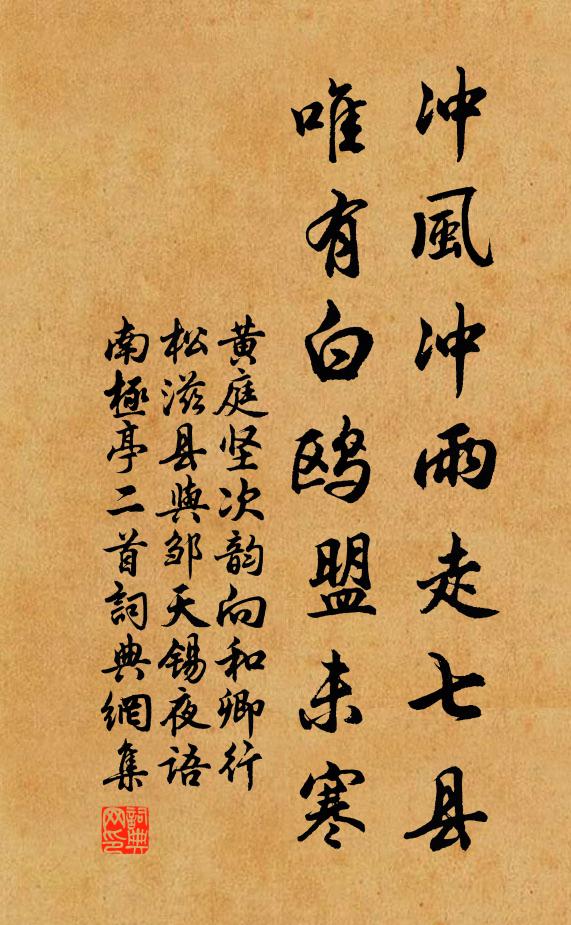 冲風冲雨走七县
唯有白鸥盟未寒
黄庭坚次韵向和卿行
松滋县與邹天锡夜语
南極亭二首詞典網集
詞典网印